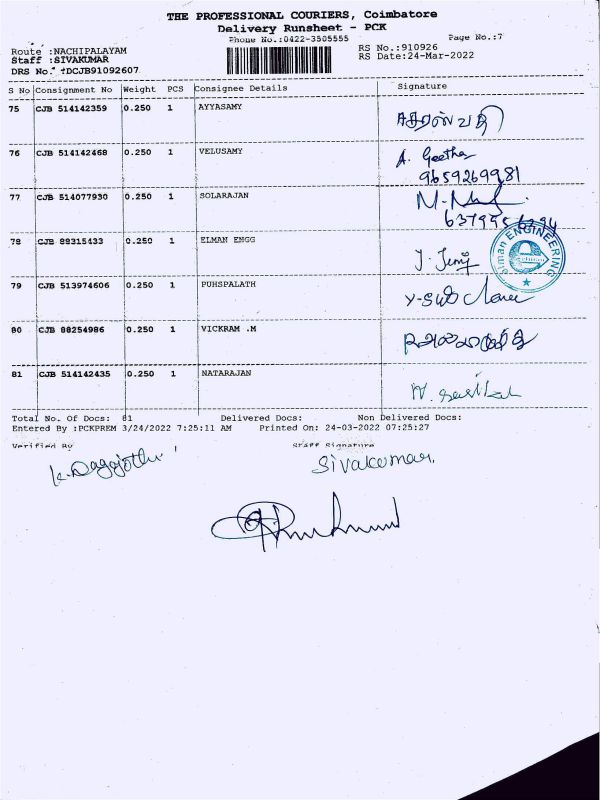 THE PROFESSIONAL COURIERS, Coimbatore
Delivery Runsheet - PCK
Phone No.:0422-3505555
Page No.:7
Route :NACHIPALAYAM
RS No.:910926
Staff :SIVAKUMAR
RS Date:24-Mar-2022
DRS No. *DCJB91092607
S No Consignment No Weight PCS Consignee Details Signature
75 CJB 514142359 0.250 1 AYYASAMY
76 CJB 514142468 0.250 1 VELUSAMY A. Geetha
9659269981
77 CJB 514077930 0.250 1 SOLARAJAN
78 CJB 88315433 0.250 1 ELMAN ENGG
ENGINEERING
79 CJB 513974606 0.250 1 PUHSPALATH
80 CJB 88254986 0.250 1 VICKRAM .M
81 CJB 514142435 0.250 1 NATARAJAN
Total No. Of Docs: 81 Delivered Docs: Non Delivered Docs:
Entered By :PCKPREM 3/24/2022 7:25:11 AM Printed On: 24-03-2022 07:25:27
Verified By Staff Signature
Sivakumar.